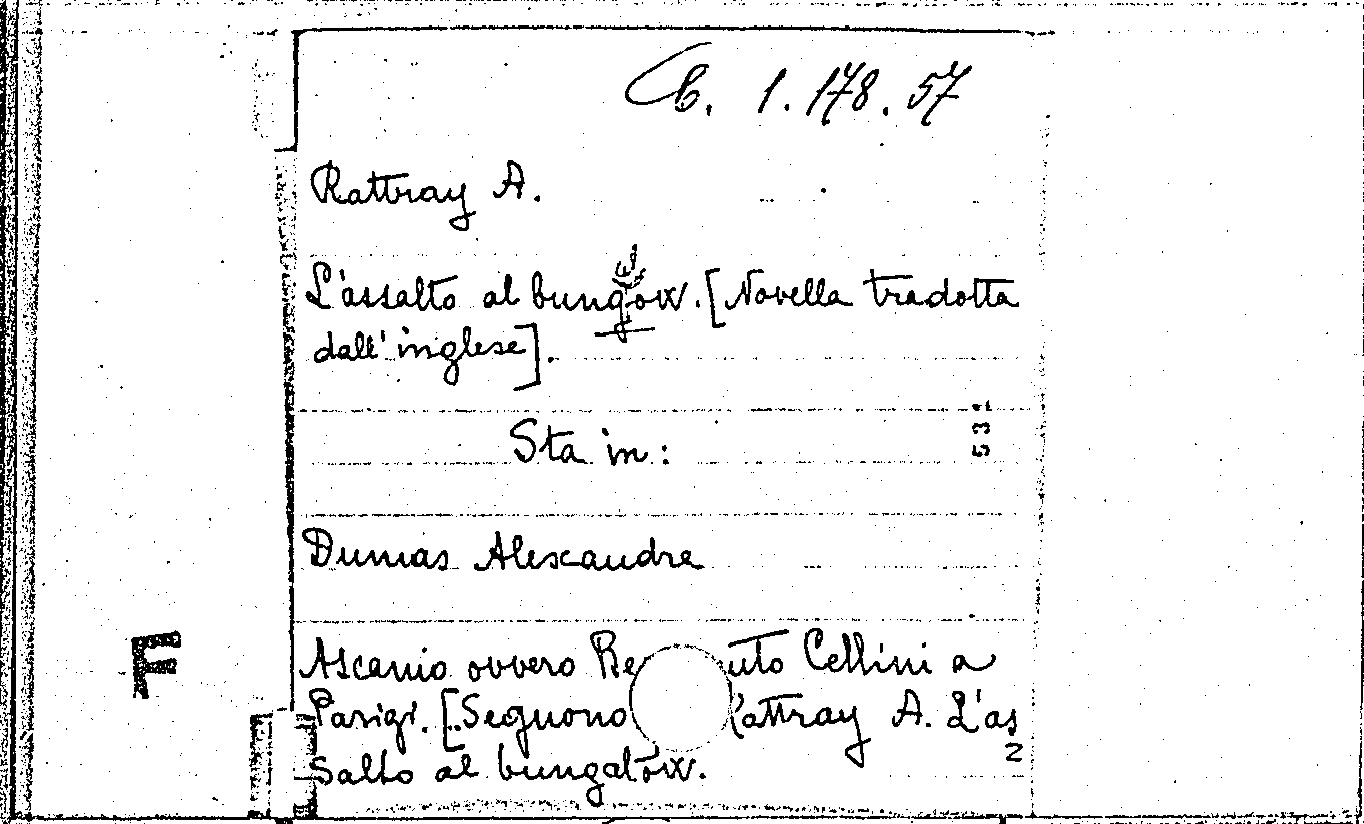 C. 1.178.57
Rattray A.
L'assalto al bungalow. [Novella tradotta
dall'inglese].
Sta in:
532
Dumas Alexandre
Ascanio ovvero Be uto Cellini a
F
Parigi. [Seguono attray A. L'as
2
salto al bungalow.